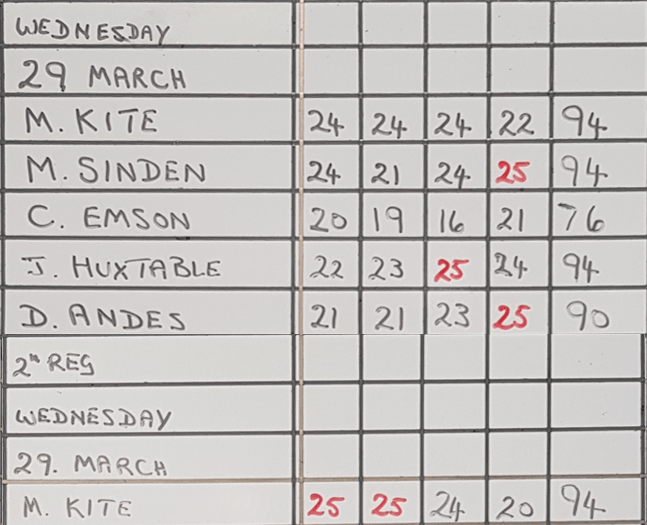 WEDNESDAY
29 MARCH
M. KITE 24 24 24 22 94
M. SINDEN 24 21 24 25 94
C. EMSON 20 19 16 21 76
J. HUXTABLE 22 23 25 24 94
D. ANDES 21 21 23 25 90
2ⁿ REG
WEDNESDAY
29. MARCH
M. KITE 25 25 24 20 94